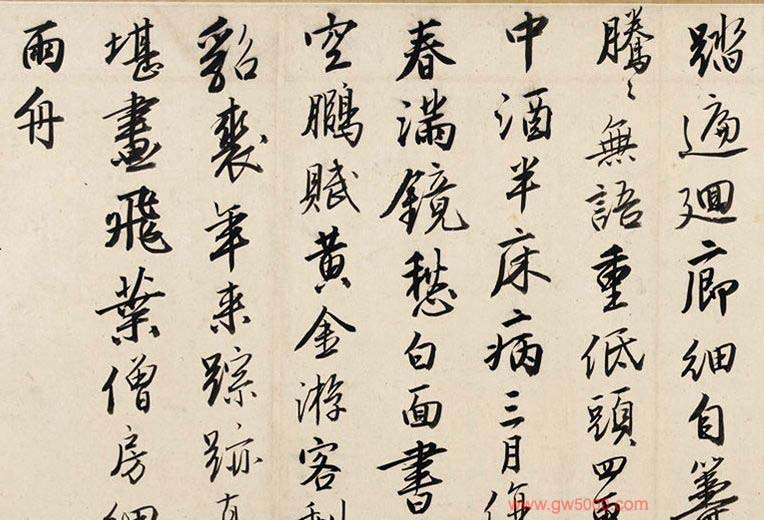 踏遍迴廊細自籌
騰〻無語重低頭四更
中酒半床病三月傷
春滿鏡愁白面書
空鵬賦黄金游客剩
貂裘年来踪跡真
堪畫飛葉僧房細
雨舟
www.gw5000.com